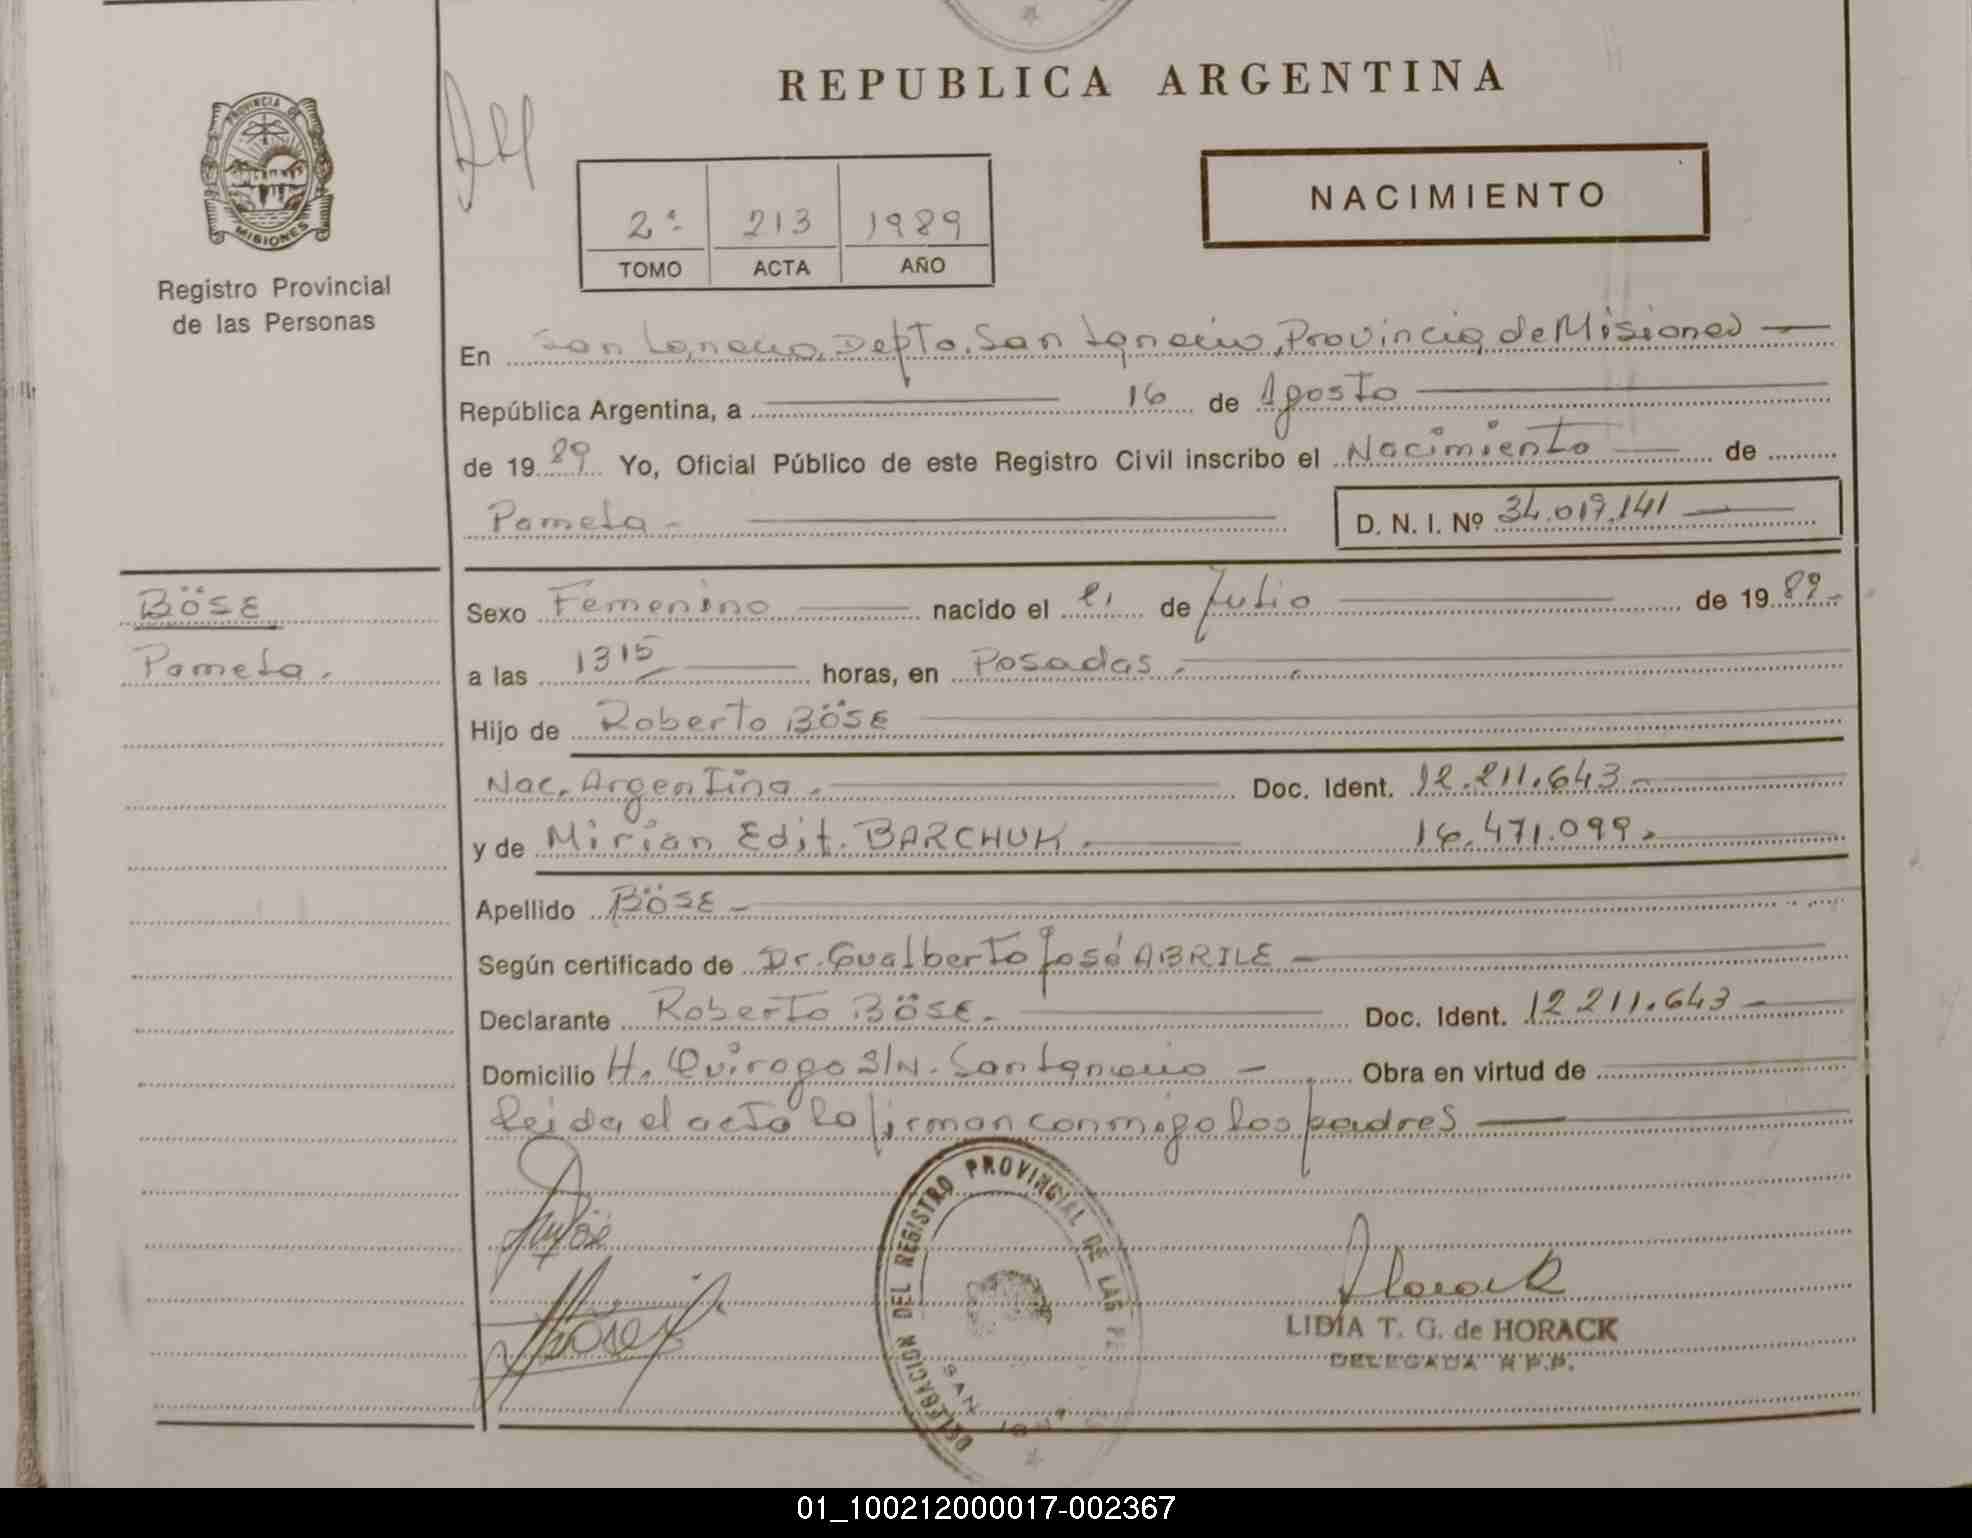 REPUBLICA ARGENTINA
PROVINCIA DE MISIONES
Registro Provincial
de las Personas
2º 213 1989
TOMO ACTA AÑO
NACIMIENTO
En San Ignacio, Depto. San Ignacio, Provincia de Misiones
República Argentina, a 16 de Agosto
de 1989 Yo, Oficial Público de este Registro Civil inscribo el Nacimiento de
Pamela D. N. I. Nº 34.019.141
BÖSE
Pamela.
Sexo Femenino nacido el 21 de Julio de 1989
a las 1315 horas, en Posadas.
Hijo de Roberto BÖSE
Nac. Argentina. Doc. Ident. 12.211.643
y de Mirian Edit. BARCHUK 16.471.099.
Apellido BÖSE
Según certificado de Dr. Gualberto José ABRILE
Declarante Roberto BÖSE. Doc. Ident. 12.211.643
Domicilio H. Quiroga S/N. San Ignacio Obra en virtud de
leida el acta la firman conmigo los padres
DELEGACION DEL REGISTRO PROVINCIAL DE LAS PE
SAN
Horack
LIDIA T. G. de HORACK
DELEGADA R.P.P.
01_100212000017-002367